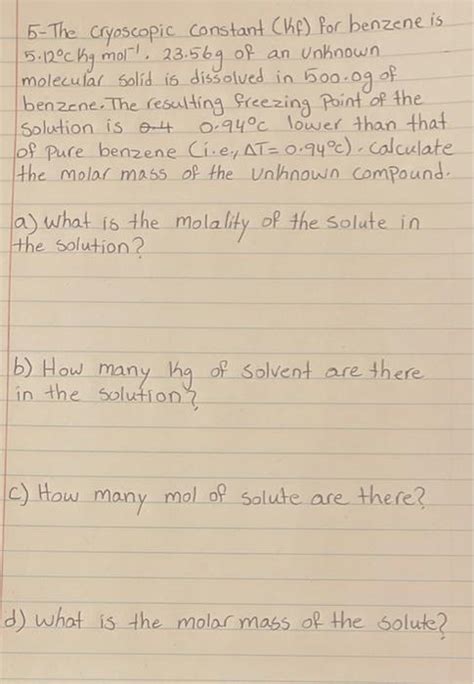 5-The cryoscopic constant (Kf) for benzene is
5.12°C Kg mol⁻¹. 23.56g of an unknown
molecular solid is dissolved in 500.0g of
benzene. The resulting freezing point of the
solution is 0.4 0.94°C lower than that
of pure benzene (i.e., ΔT= 0.94°C). Calculate
the molar mass of the unknown compound.
a) what is the molality of the solute in
the solution?
b) How many kg of solvent are there
in the solution?
c) How many mol of solute are there?
d) what is the molar mass of the solute?